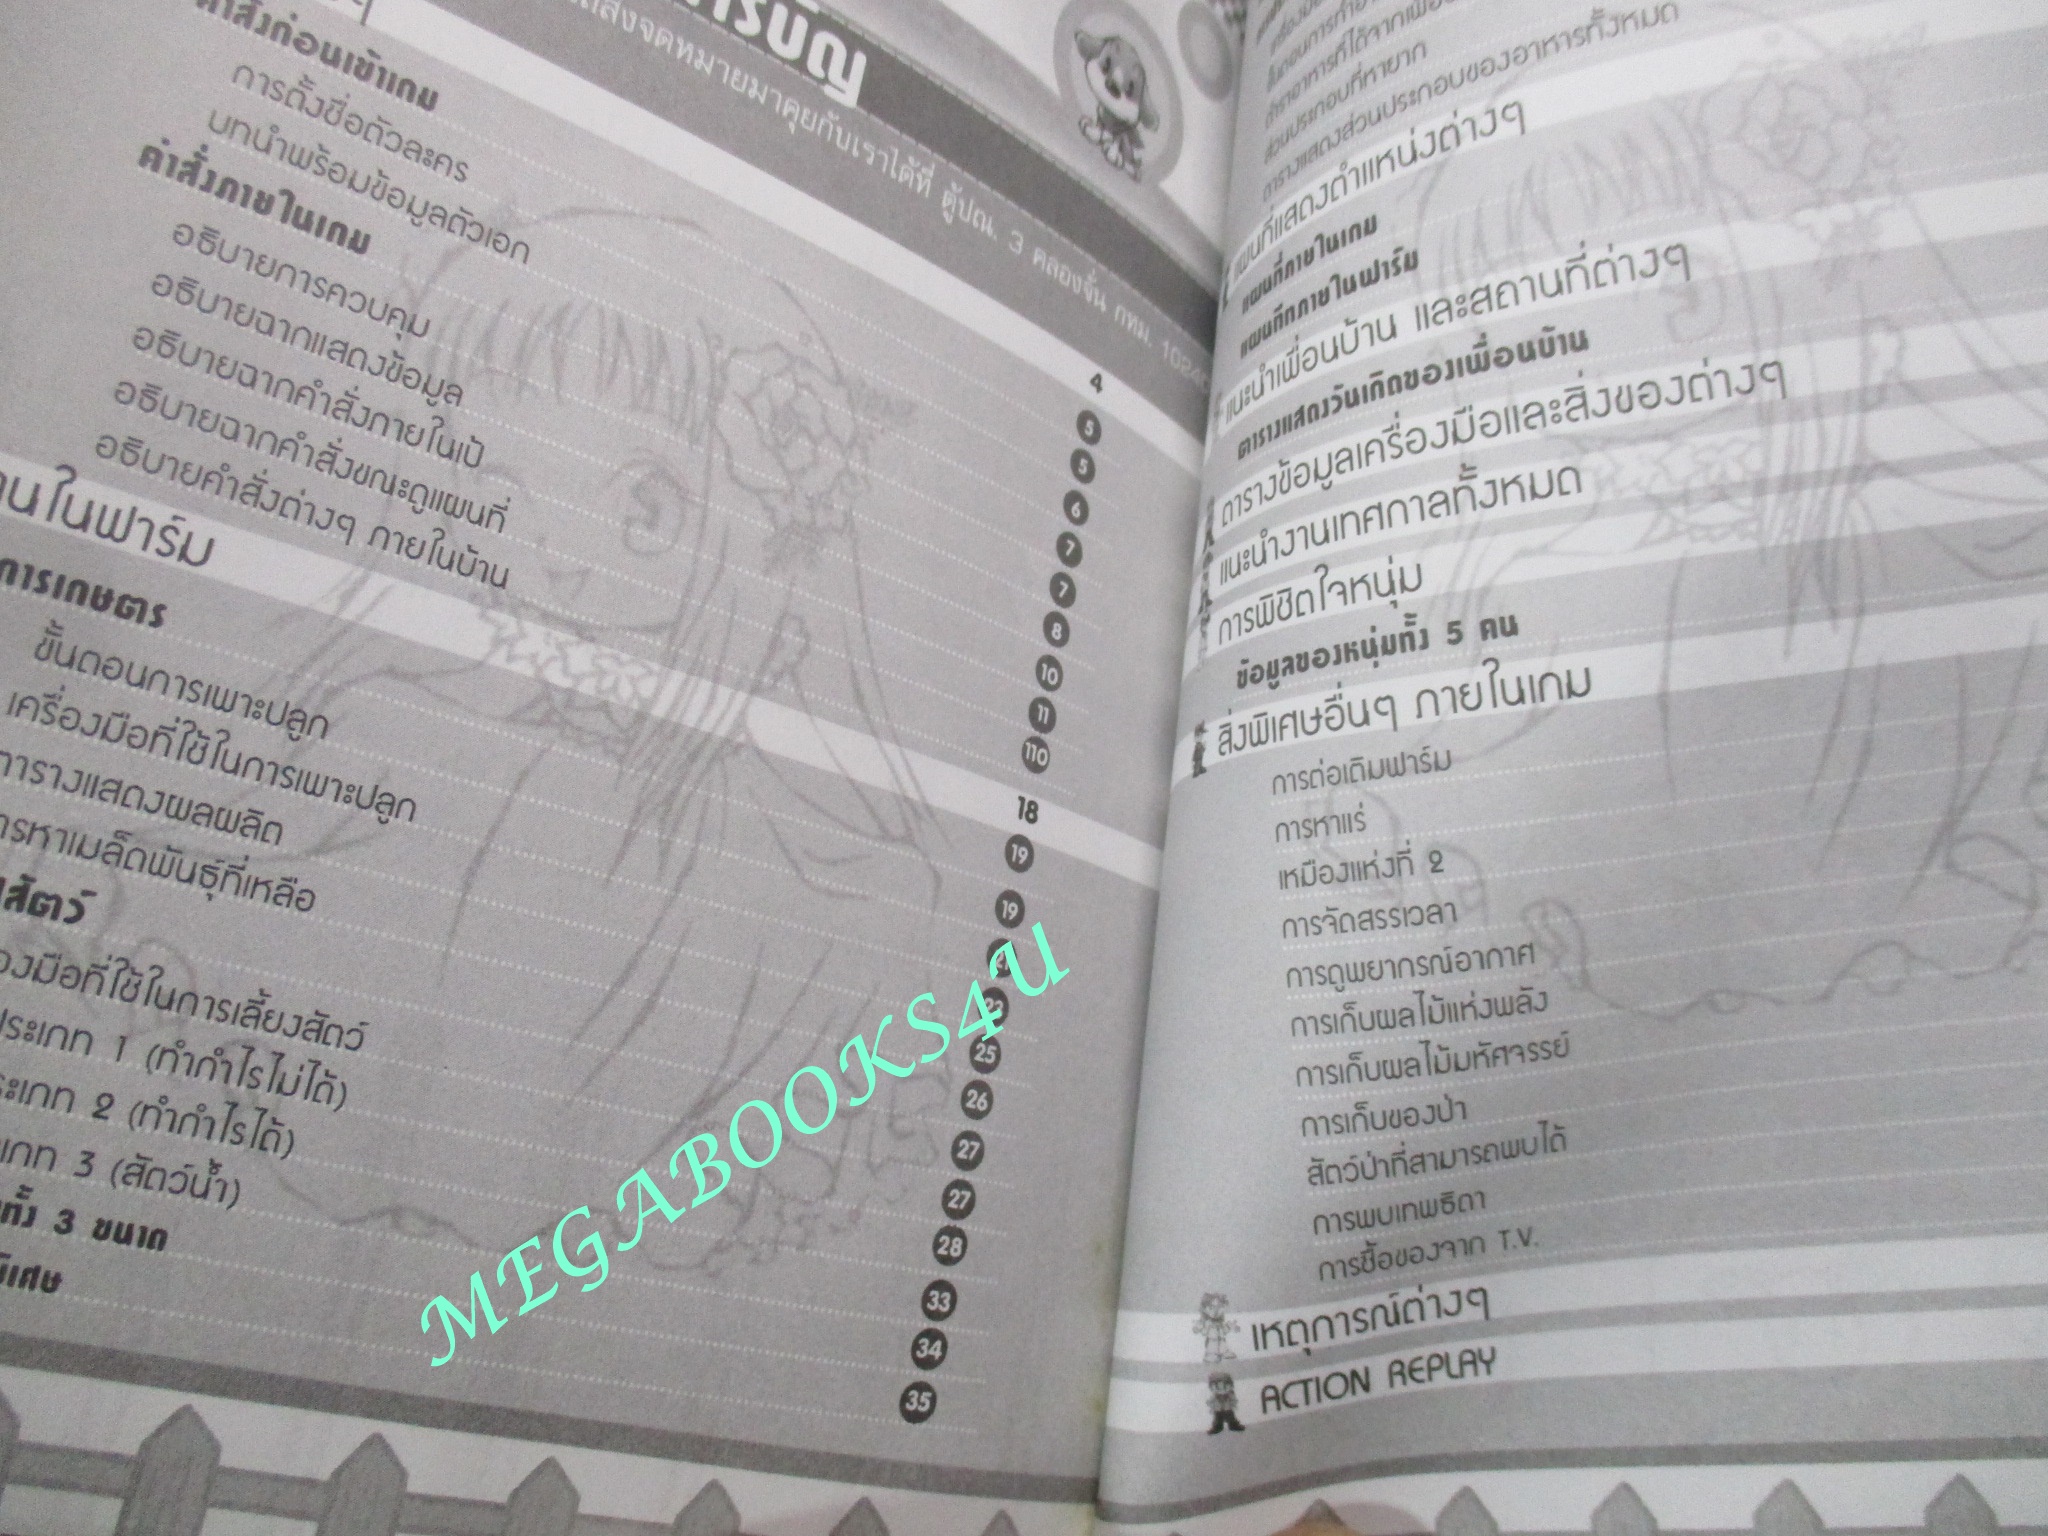 สารบัญ
ส่งจดหมายมาคุยกันเราได้ที่ ตู้ปณ. 3 คลองจั่น กทม. 10240
4
คำสั่งก่อนเข้าเกม
5
การตั้งชื่อตัวละคร
5
บทนำพร้อมข้อมูลตัวเอก
6
คำสั่งภายในเกม
7
อธิบายการควบคุม
7
อธิบายฉากแสดงข้อมูล
8
อธิบายฉากคำสั่งภายในเป้
10
อธิบายฉากคำสั่งขณะดูแผนที่
11
อธิบายคำสั่งต่างๆ ภายในบ้าน
110
ในฟาร์ม
18
การเกษตร
19
ขั้นตอนการเพาะปลูก
19
เครื่องมือที่ใช้ในการเพาะปลูก
ตารางแสดงผลผลิต
23
การหาเมล็ดพันธุ์ที่เหลือ
25
สัตว์
26
มือที่ใช้ในการเลี้ยงสัตว์
27
ประเภท 1 (ทำกำไรไม่ได้)
27
ประเภท 2 (ทำกำไรได้)
28
เภท 3 (สัตว์น้ำ)
33
ทั้ง 3 ขนาด
34
35
ส่วนประกอบที่หายาก
ตารางแสดงส่วนประกอบของอาหารทั้งหมด
แผนที่แสดงตำแหน่งต่างๆ
แผนที่ภายในเกม
แผนที่ภายในฟาร์ม
แนะนำเพื่อนบ้าน และสถานที่ต่างๆ
ตารางแสดงวันเกิดของเพื่อนบ้าน
ตารางข้อมูลเครื่องมือและสิ่งของต่างๆ
แนะนำงานเทศกาลทั้งหมด
การพิชิตใจหนุ่ม
ข้อมูลของหนุ่มทั้ง 5 คน
สิ่งพิเศษอื่นๆ ภายในเกม
การต่อเติมฟาร์ม
การหาแร่
เหมืองแห่งที่ 2
การจัดสรรเวลา
การดูพยากรณ์อากาศ
การเก็บผลไม้แห่งพลัง
การเก็บผลไม้มหัศจรรย์
การเก็บของป่า
สัตว์ป่าที่สามารถพบได้
การพบเทพธิดา
การซื้อของจาก T.V.
เหตุการณ์ต่างๆ
ACTION REPLAY
MEGABOOKS4U